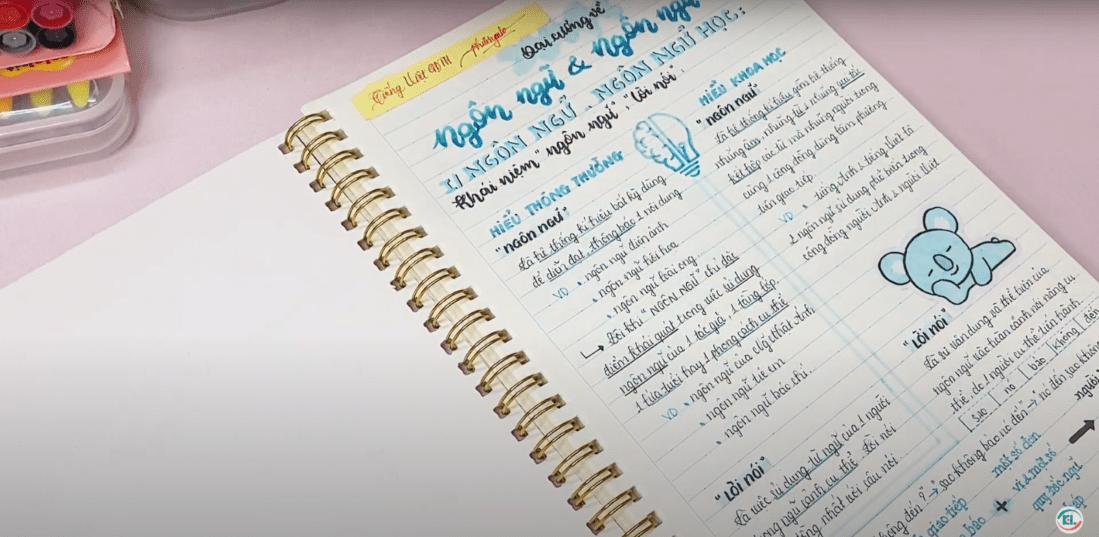 Tiếng Việt GDTH
Đại cương về
ngôn ngữ & ngôn ngữ
I/ NGÔN NGỮ - NGÔN NGỮ HỌC:
Khái niệm "ngôn ngữ", "lời nói".
HIỂU THÔNG THƯỜNG
"NGÔN NGỮ"
Là hệ thống kí hiệu bất kỳ dùng
để diễn đạt, thông báo 1 nội dung
VD • ngôn ngữ điện ảnh
• ngôn ngữ hội họa
• ngôn ngữ loài ong...
Đôi khi "NGÔN NGỮ" chỉ đặc
điểm khái quát trong việc sử dụng
ngôn ngữ của 1 tác giả, 1 tầng lớp,
1 lứa tuổi hay 1 phong cách cụ thể
VD • ngôn ngữ của Ng Nhật Ánh
• ngôn ngữ trẻ em
• ngôn ngữ báo chí...
"LỜI NÓI"
Là việc sử dụng từ ngữ của 1 người
trong ngữ cảnh cụ thể. Lời nói
đồng nhất với câu nói...
HIỂU KHOA HỌC
"NGÔN NGỮ"
Là hệ thống kí hiệu gồm hệ thống
những âm, những từ & những quy tắc
kết hợp các từ mà những người trong
cùng 1 cộng đồng dùng làm phương
tiện giao tiếp
VD • tiếng Anh & tiếng Việt là
2 ngôn ngữ sử dụng phổ biến trong
cộng đồng người Anh & người Việt
"LỜI NÓI"
Là sự vận dụng và thể hiện của
ngôn ngữ vào hoàn cảnh nói năng cụ
thể, do 1 người cụ thể tiến hành
sao | nó | bảo | không | đến
sao không bảo nó đến → nó đến sao không
không đến?" → sao không bảo
người
một số đơn
vị & một số
quy tắc ngữ
giao tiếp
TEL